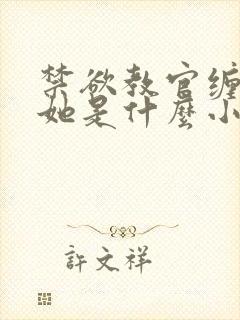 禁欲教官缠
她是什麼小
許文祥